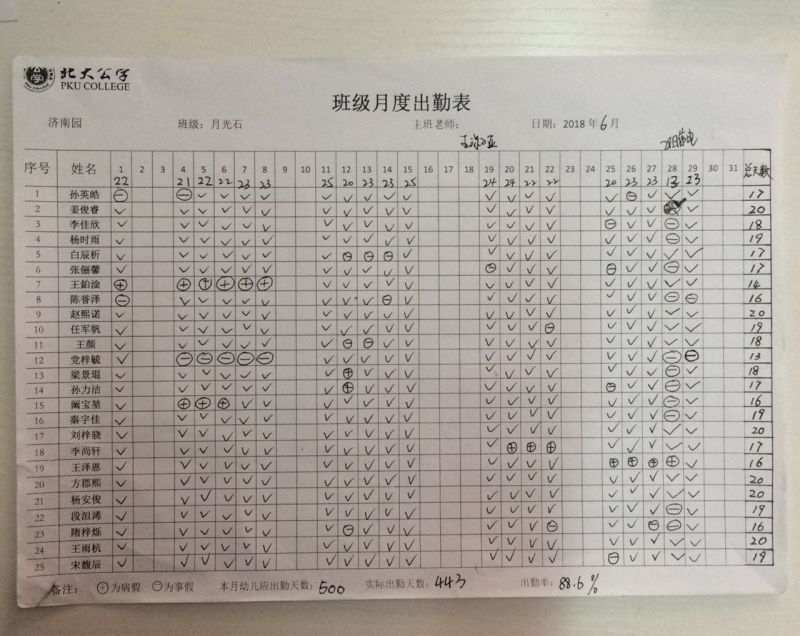 北大公学
PKU COLLEGE
班级月度出勤表
济南园 班级：月光石 主班老师： 日期：2018 年 6 月
序号 姓名 1 2 3 4 5 6 7 8 9 10 11 12 13 14 15 16 17 18 19 20 21 22 23 24 25 26 27 28 29 30 31 总天数
22 21 22 22 23 23 25 20 23 23 25 24 24 22 22 20 23 23 13 23
1 孙英皓 17
2 姜俊睿 20
3 李佳欣 18
4 杨时雨 19
5 白辰析 17
6 张俪馨 17
7 王铂淦 14
8 陈誉泽 16
9 赵熙诺 20
10 任军帆 19
11 王颜 18
12 党梓毓 13
13 梁景琨 18
14 孙力洁 17
15 阚宝堃 16
16 秦宇佳 19
17 刘梓骁 20
18 李尚轩 17
19 王泽恩 16
20 方郡熙 20
21 杨安俊 20
22 段洹浠 19
23 隋梓烁 16
24 王雨杭 20
25 宋馥辰 19
备注： ⊕为病假 ⊖为事假 本月幼儿应出勤天数：500 实际出勤天数：443 出勤率：88.6%